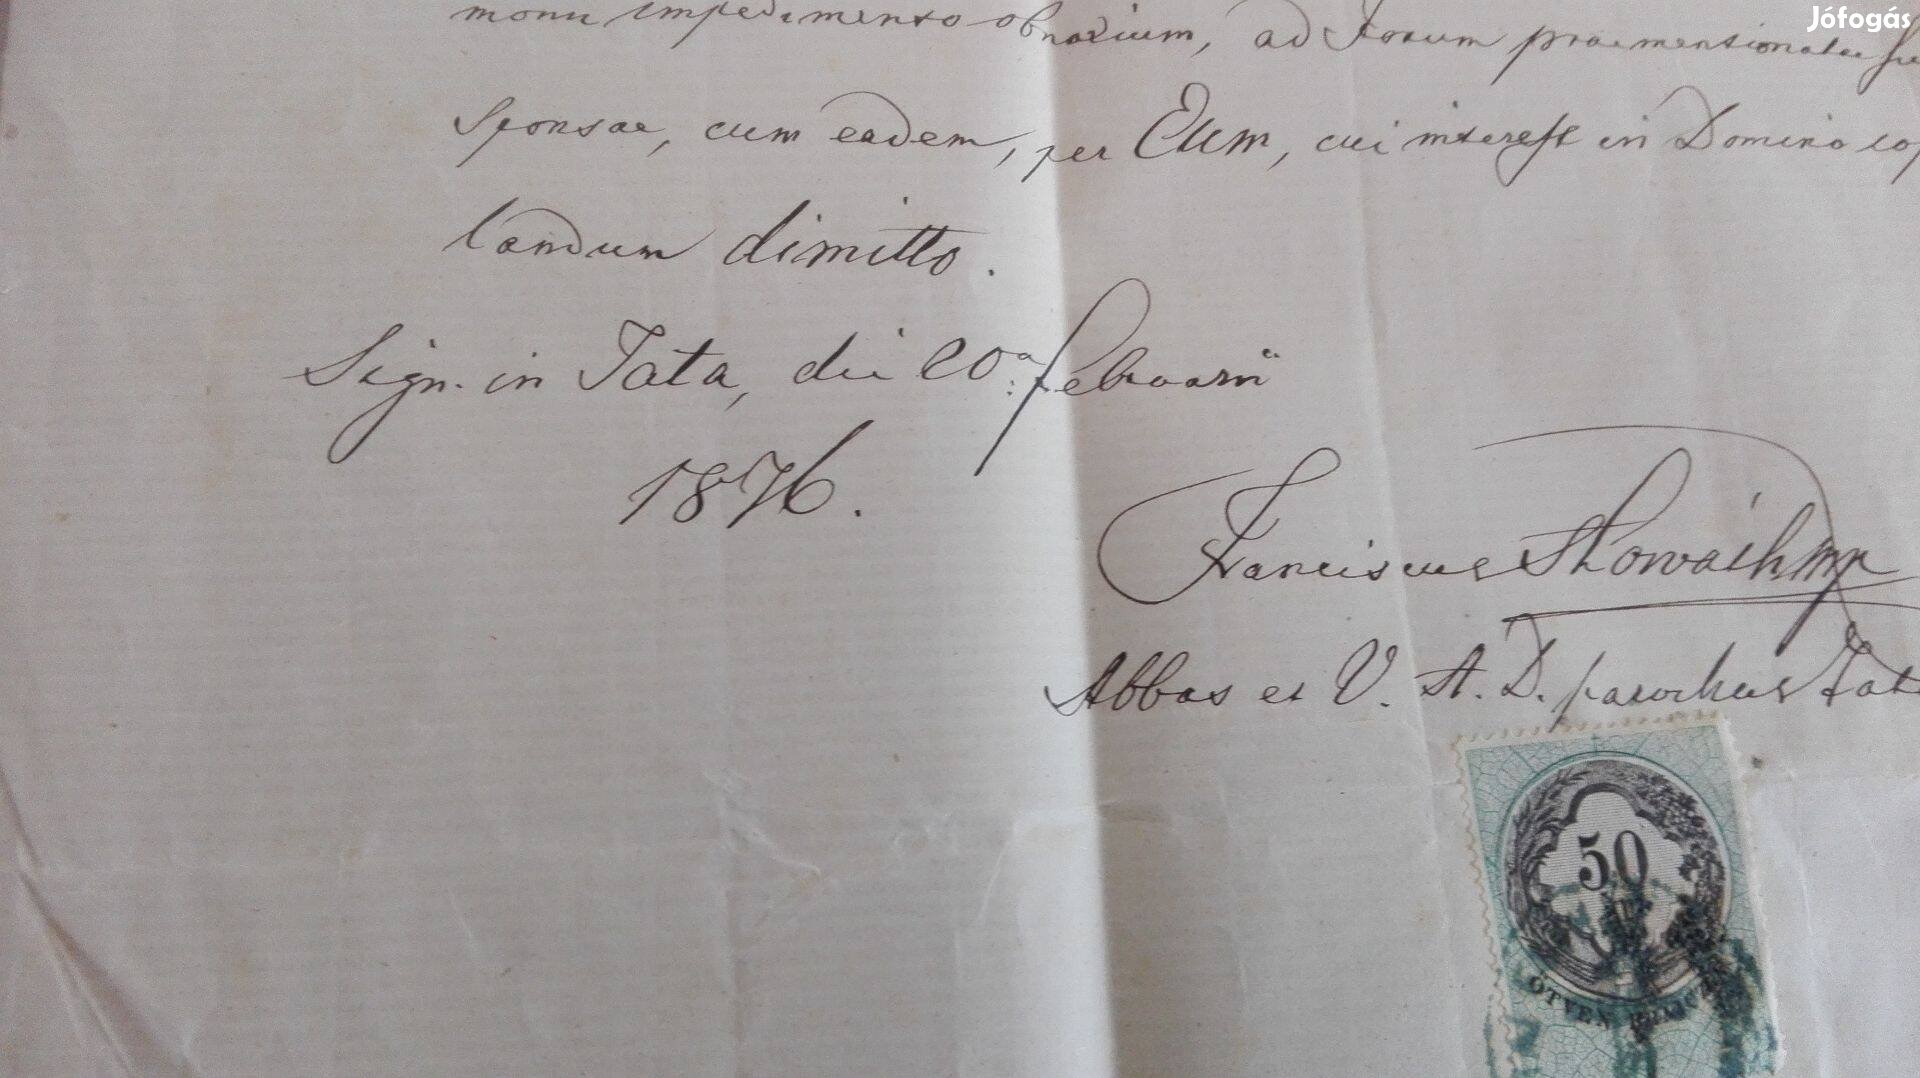 Jófogás
monii impedimento obnoxium, ad Forum praementionatae
Sponsae, cum eadem, per Eum, cui interest in Domino cop
landum dimitto.
Sign. in Tata, die 20a februarii
1876.
Franciscus mp
Abbas et V. A. D. parochus Tat
50
ÖTVEN KRAJCZ